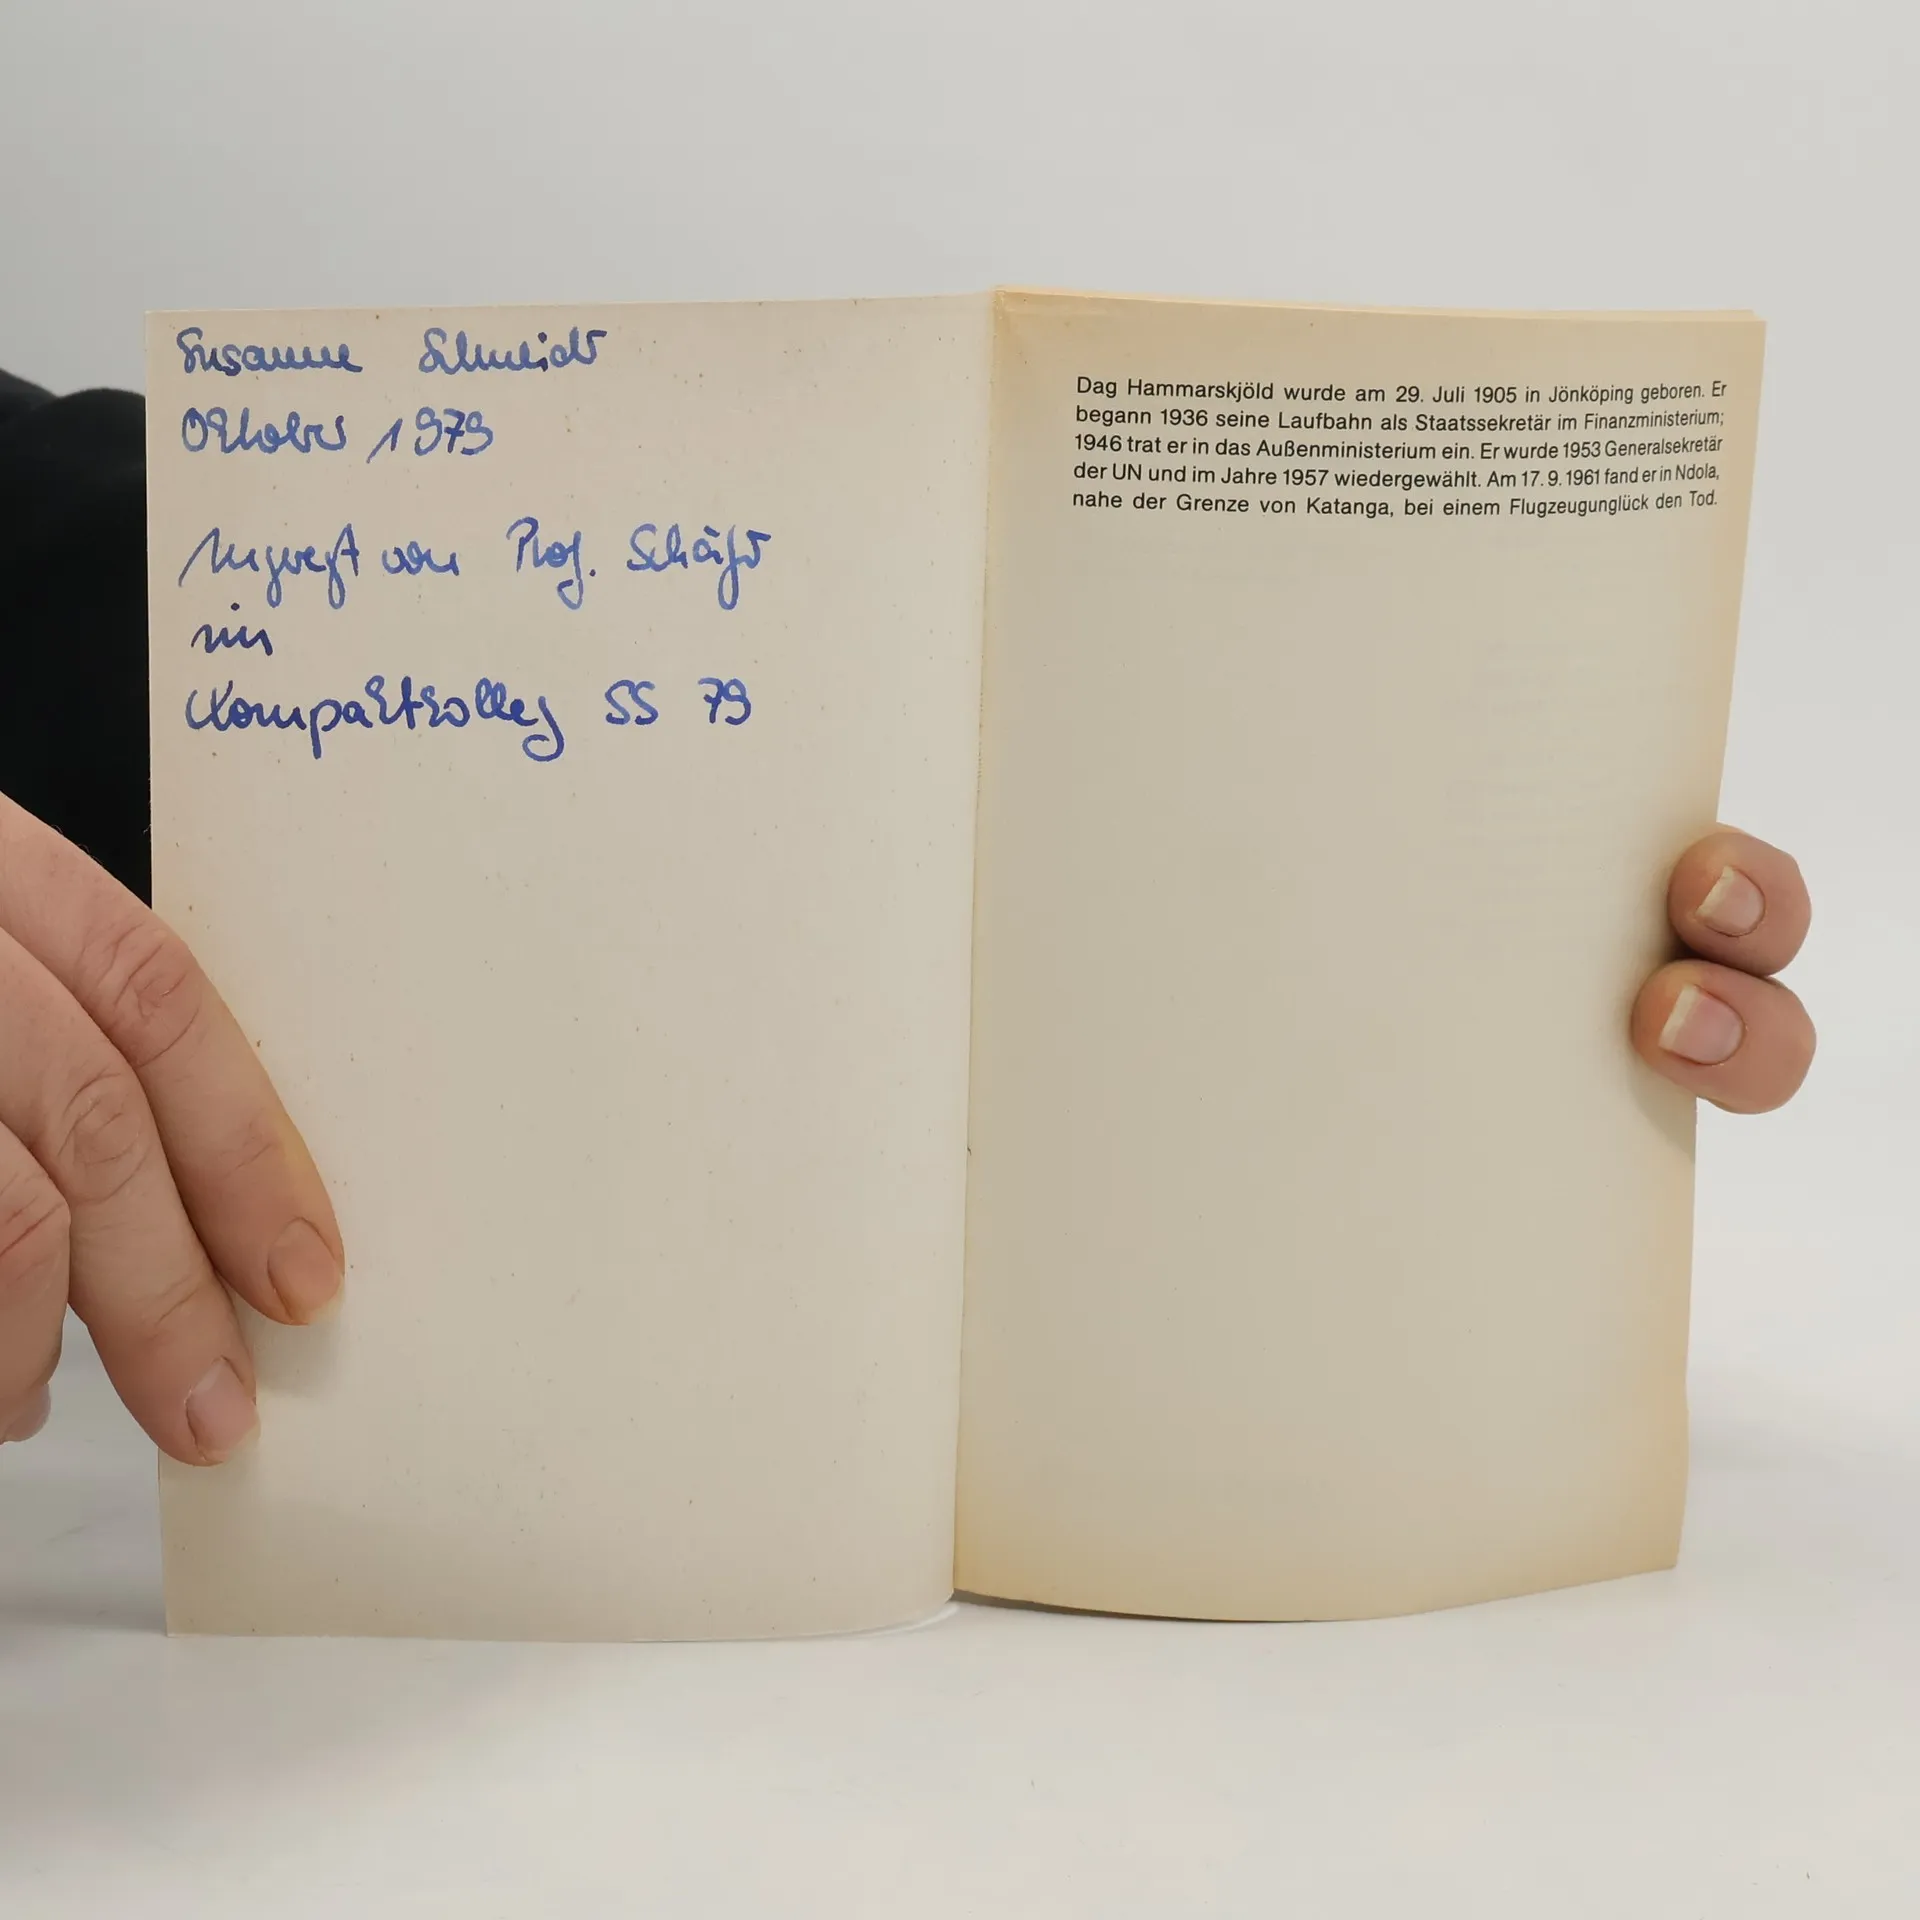 Susanne Schmidt
Oktober 1979
Angeregt von Prof. Schäfer
im
Kompaktkolleg SS 79
Dag Hammarskjöld wurde am 29. Juli 1905 in Jönköping geboren. Er
begann 1936 seine Laufbahn als Staatssekretär im Finanzministerium;
1946 trat er in das Außenministerium ein. Er wurde 1953 Generalsekretär
der UN und im Jahre 1957 wiedergewählt. Am 17. 9. 1961 fand er in Ndola,
nahe der Grenze von Katanga, bei einem Flugzeugunglück den Tod.